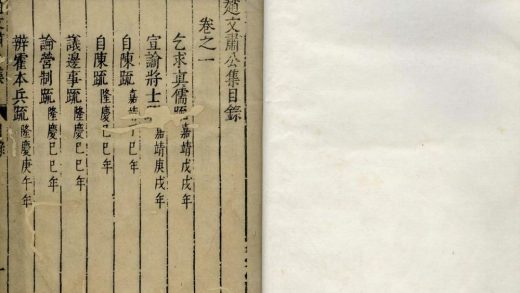 趙文肅公集目錄
卷之一
乞求真儒疏 嘉靖戊戌年
宣諭將士 嘉靖庚戌年
自陳疏 嘉 年
自陳疏 隆慶己巳年
議邊事疏 隆慶己巳年
論營制疏 隆慶己巳年
辨霍本兵疏 隆慶庚午年